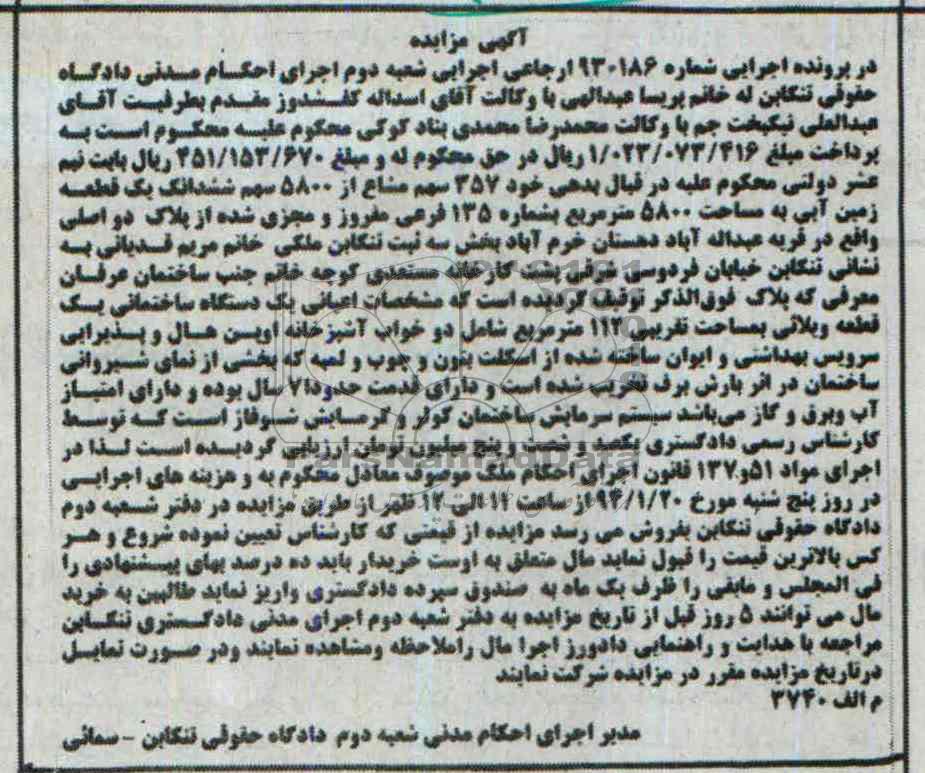 آگهی مزایده
در پرونده اجرایی شماره ۹۳۰۱۸۶ ارجاعی اجرایی شعبه دوم اجرای احکام مدنی دادگاه
حقوقی تنکابن له خانم پریسا عبدالهی با وکالت آقای اسداله کفشدوز مقدم بطرفیت آقای
عبدالعلی نیکبخت جم با وکالت محمدرضا محمدی بناد کوکی محکوم علیه محکوم است به
پرداخت مبلغ ۱/۰۲۳/۰۷۳/۴۱۶ ریال در حق محکوم له و مبلغ ۴۵۱/۱۵۳/۶۷۰ ریال بابت نیم
عشر دولتی محکوم علیه در قبال بدهی خود ۳۵۷ سهم مشاع از ۵۸۰۰ سهم ششدانگ یک قطعه
زمین آبی به مساحت ۵۸۰۰ مترمربع بشماره ۱۳۵ فرعی مفروز و مجزی شده از پلاک دو اصلی
واقع در قریه عبداله آباد دهستان خرم آباد بخش سه ثبت تنکابن ملکی خانم مریم قدیانی به
نشانی تنکابن خیابان فردوسی شرقی پشت کارخانه مستعدی کوچه خاتم جنب ساختمان عرفان
معرفی که پلاک فوق‌الذکر توقیف گردیده است که مشخصات اعیانی یک دستگاه ساختمانی یک
قطعه ویلائی بمساحت تقریبی ۱۱۲ مترمربع شامل دو خواب آشپزخانه اوپن هال و پذیرایی
سرویس بهداشتی و ایوان ساخته شده از اسکلت بتون و چوب و لمبه که بخشی از نمای شیروانی
ساختمان در اثر بارش برف تخریب شده است و دارای قدمت حدودا ۷ سال بوده و دارای امتیاز
آب وبرق و گاز می‌باشد سیستم سرمایش ساختمان کولر و گرمایش شوفاژ است که توسط
کارشناس رسمی دادگستری یکصد و شصت و پنج میلیون تومان ارزیابی گردیده است لذا در
اجرای مواد ۵۱و۱۳۷ قانون اجرای احکام ملک موصوف معادل محکوم به و هزینه های اجرایی
در روز پنج شنبه مورخ ۹۴/۱/۲۰ از ساعت ۱۱ الی ۱۲ ظهر از طریق مزایده در دفتر شعبه دوم
دادگاه حقوقی تنکابن بفروش می رسد مزایده از قیمتی که کارشناس تعیین نموده شروع و هر
کس بالاترین قیمت را قبول نماید مال متعلق به اوست خریدار باید ده درصد بهای پیشنهادی را
فی المجلس و مابقی را ظرف یک ماه به صندوق سپرده دادگستری واریز نماید طالبین به خرید
مال می توانند ۵ روز قبل از تاریخ مزایده به دفتر شعبه دوم اجرای مدنی دادگستری تنکابن
مراجعه با هدایت و راهنمایی دادورز اجرا مال راملاحظه ومشاهده نمایند ودر صورت تمایل
درتاریخ مزایده مقرر در مزایده شرکت نمایند
م الف ۳۷۴۰
مدیر اجرای احکام مدنی شعبه دوم دادگاه حقوقی تنکابن - سمائی